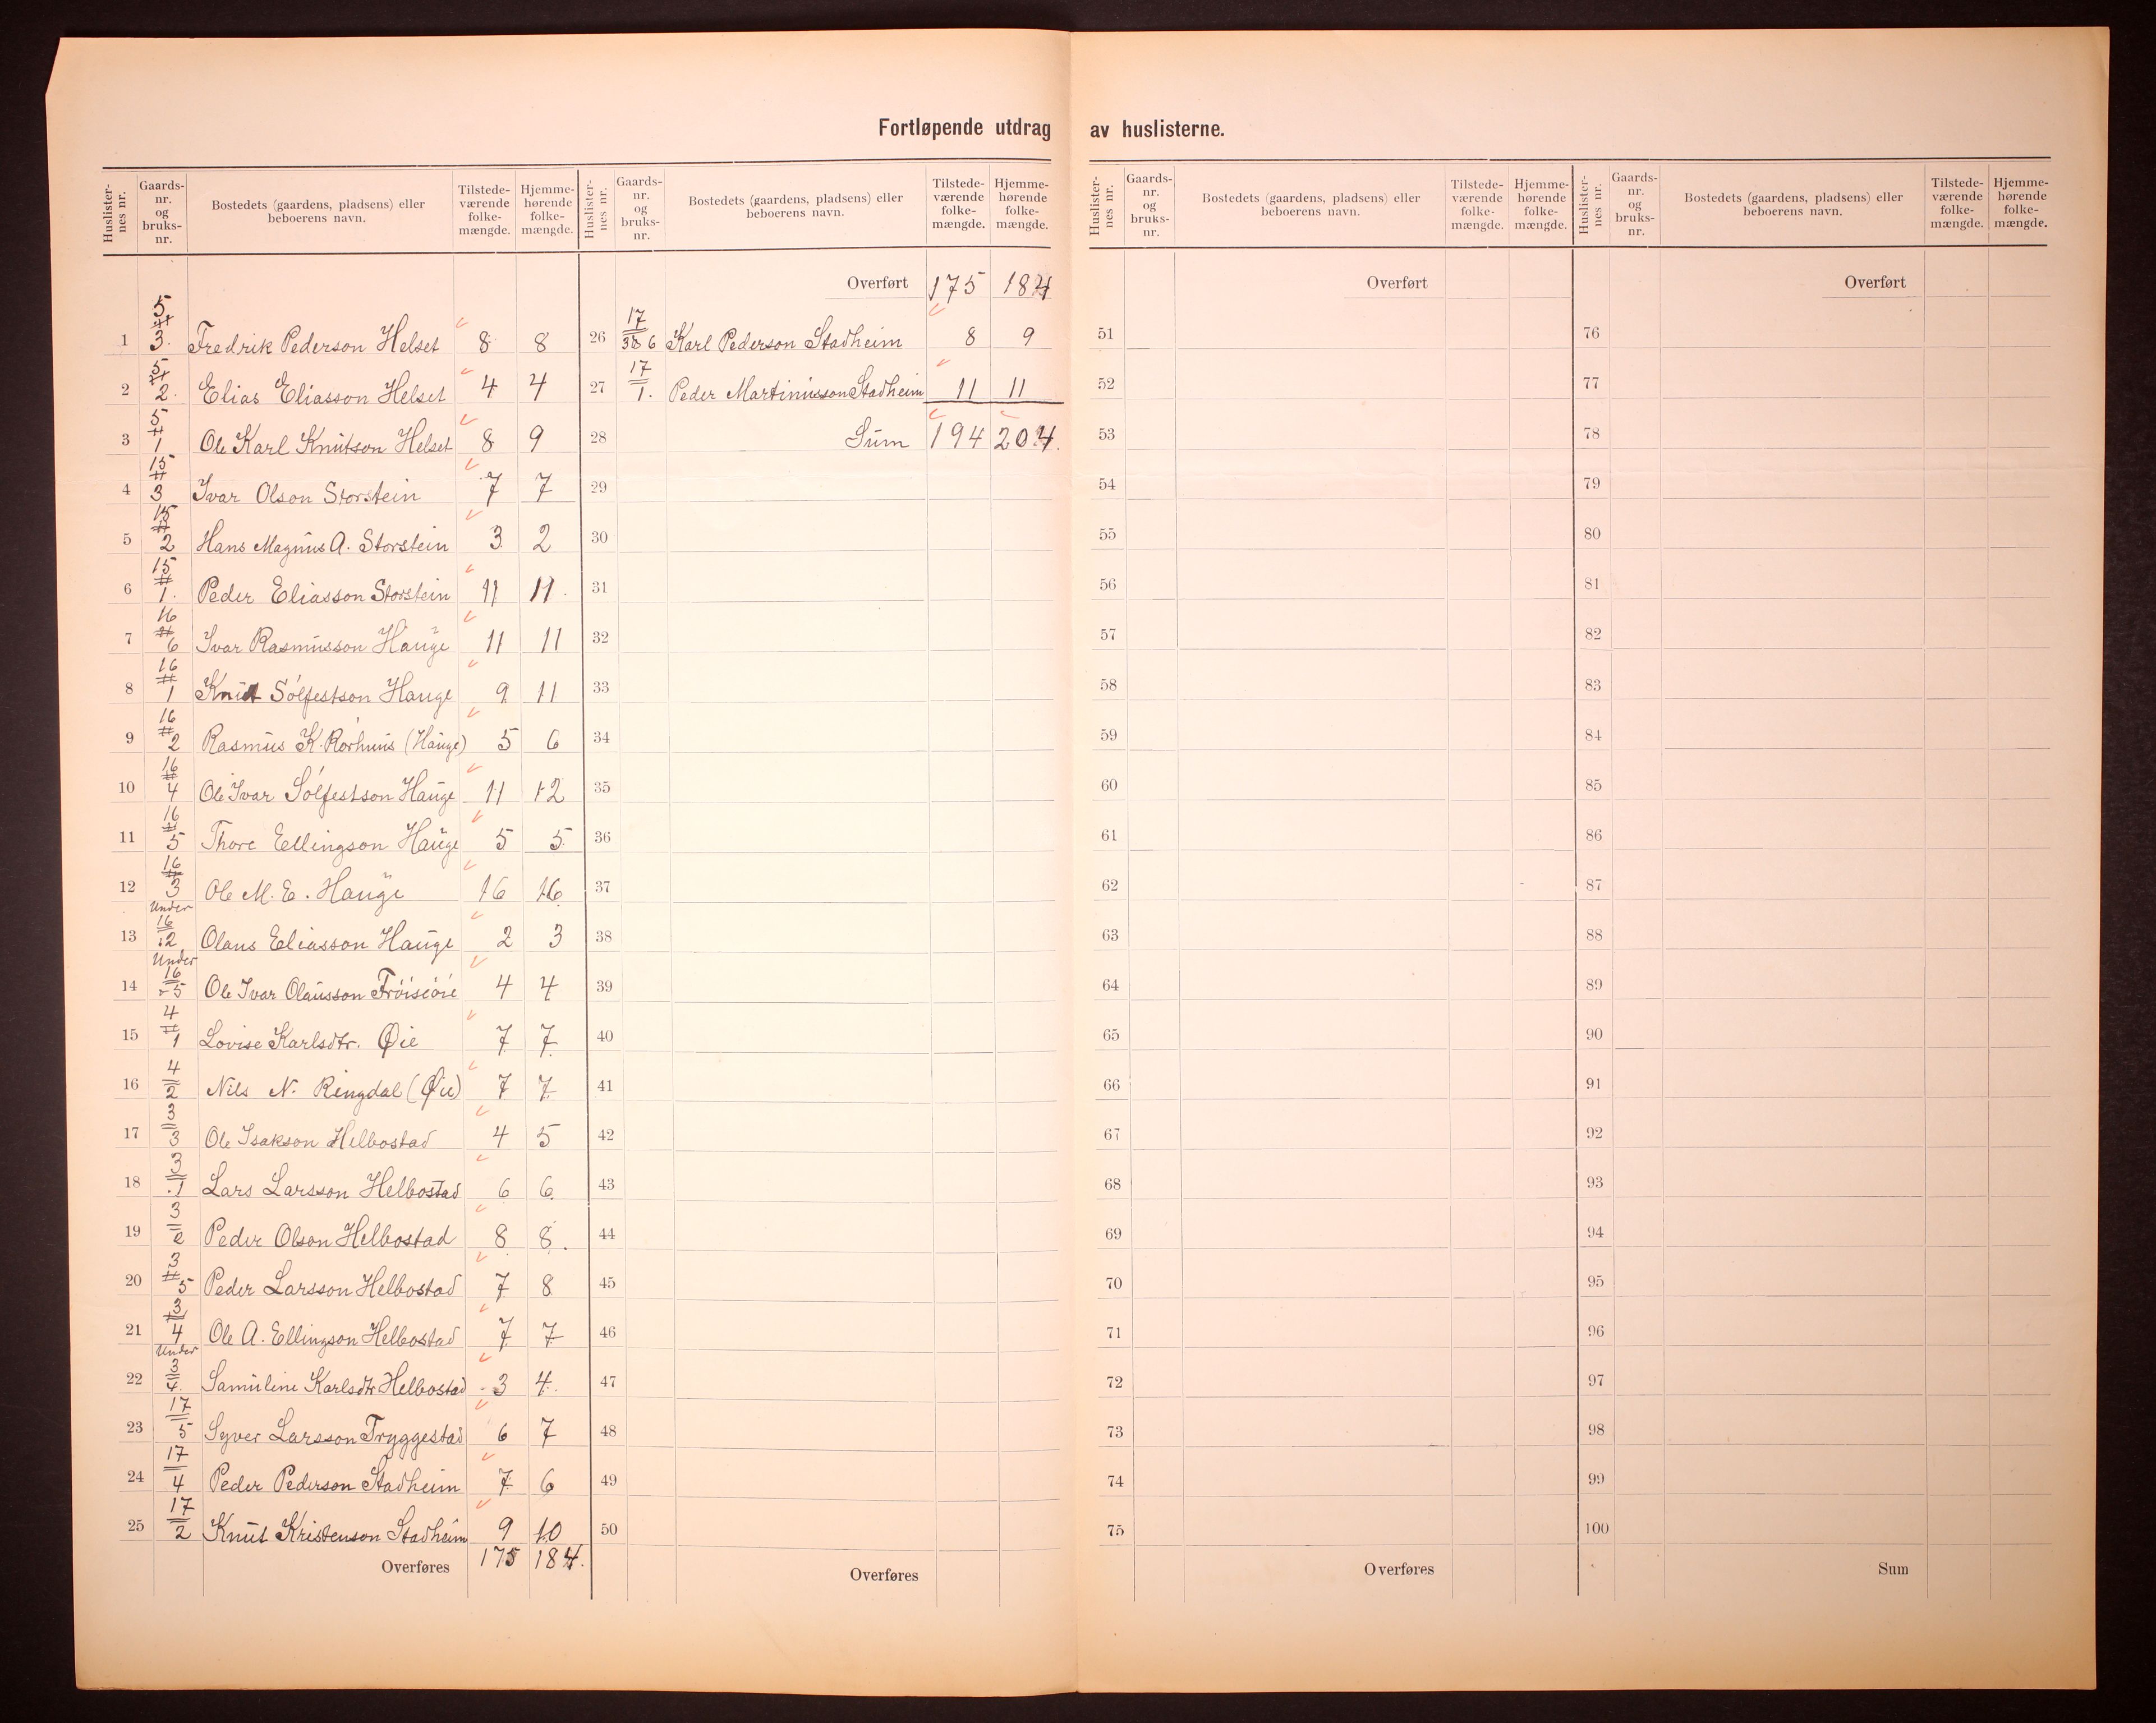 Fortløpende utdrag av huslisterne.
Huslister-nes nr. Gaards-nr. og bruks-nr. Bostedets (gaardens, pladsens) eller beboerens navn. Tilstede-værende folke-mængde. Hjemme-hørende folke-mængde.
1 5/3. Fredrik Pederson Helset 8 8
2 5/2. Elias Eliasson Helset 4 4
3 5/1 Ole Karl Knutson Helset 8 9
4 15/3 Ivar Olson Storstein 7 7
5 15/2 Hans Magnus A. Storstein 3 2
6 15/1. Peder Eliasson Storstein 11 11.
7 16/6 Ivar Rasmusson Hauge 11 11
8 16/1 Knut Sólfestson Hauge 9 11
9 16/2 Rasmus K. Rörhuus (Hauge) 5 6
10 16/4 Ole Ivar Sólfestson Hauge 11 12
11 16/5 Thore Ellingson Hauge 5 5
12 16/3 Ole M. E. Hauge 16 16
13 Under 16/2 Olaus Eliasson Hauge 2 3
14 Under 16/5 Ole Ivar Olausson 4 4
15 4/1 Lovise Karlsdtr. Øie 7 7
16 4/2 Nils N. Ringdal (Øie) 7 7
17 3/3 Ole Isakson Helbostad 4 5
18 3/1 Lars Larsson Helbostad 6 6
19 3/2 Peder Olson Helbostad 8 8.
20 3/5 Peder Larsson Helbostad 7 8
21 3/4 Ole A. Ellingson Helbostad 7 7
22 Under 3/4. Samuline Karlsdtr Helbostad 3 4.
23 17/5 Syver Larsson Tryggestad 6 7
24 17/4 Peder Pederson Stadheim 7 6
25 17/2 Knut Kristenson Stadheim 9 10
Overføres 175 184.
Huslister-nes nr. Gaards-nr. og bruks-nr. Bostedets (gaardens, pladsens) eller beboerens navn. Tilstede-værende folke-mængde. Hjemme-hørende folke-mængde.
Overført 175 184
26 17/6 Karl Pederson Stadheim 8 9
27 17/1. Peder Martinusson Stadheim 11 11
28 Sum 194 204.
29
30
31
32
33
34
35
36
37
38
39
40
41
42
43
44
45
46
47
48
49
50
Overføres
Huslister-nes nr. Gaards-nr. og bruks-nr. Bostedets (gaardens, pladsens) eller beboerens navn. Tilstede-værende folke-mængde. Hjemme-hørende folke-mængde.
Overført
51
52
53
54
55
56
57
58
59
60
61
62
63
64
65
66
67
68
69
70
71
72
73
74
75
Overføres
Huslister-nes nr. Gaards-nr. og bruks-nr. Bostedets (gaardens, pladsens) eller beboerens navn. Tilstede-værende folke-mængde. Hjemme-hørende folke-mængde.
Overført
76
77
78
79
80
81
82
83
84
85
86
87
88
89
90
91
92
93
94
95
96
97
98
99
100
Sum